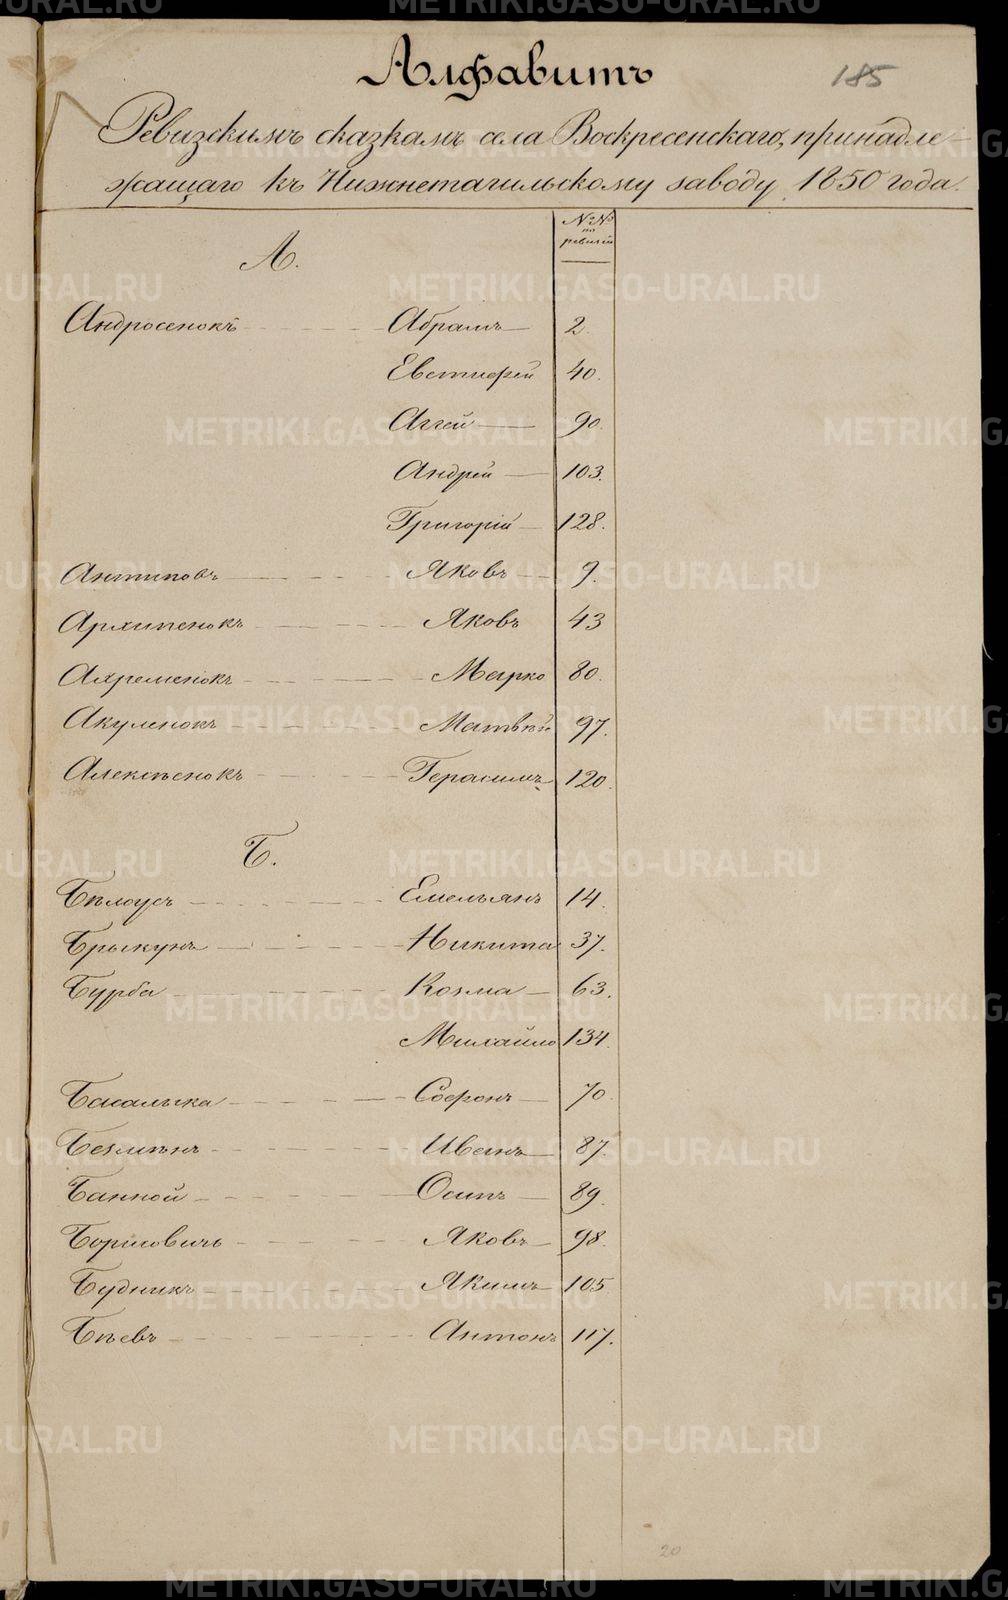 185
Алфавитъ
Ревизскимъ сказкамъ села Воскресенскаго, принадле-
жащаго къ Нижнетагильскому заводу 1850 года.
№№ по ревизіи
А.
Андросенокъ Абрамъ 2.
Евстифей 40.
Аггей 90.
Андрей 103.
Григорій 128.
Антиповъ Яковъ 9.
Архипенокъ Яковъ 43
Ахременокъ Марко 80.
Акуленокъ Матвѣй 97.
Алексѣенокъ Герасимъ 120.
Б.
Бѣлоусъ Емельянъ 14.
Брыкунъ Никита 37.
Бурба Козма 63.
Михайло 134.
Басалыка Софронъ 70.
Безмѣнъ Иванъ 87.
Банной Осипъ 89.
Борисовичъ Яковъ 98.
Будникъ Якимъ 105
Бѣевъ Антонъ 117.
20
METRIKI.GASO-URAL.RU